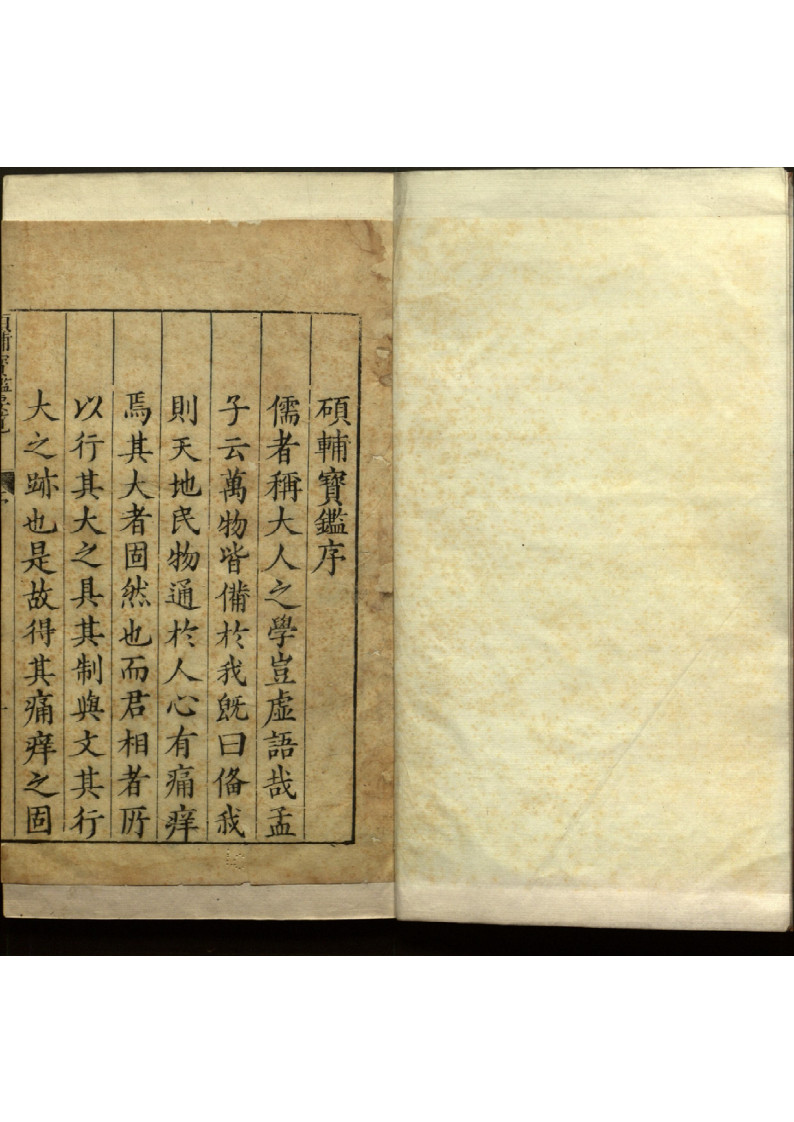 碩輔寶鑑序
儒者稱大人之學豈虛語哉孟
子云萬物皆備於我既曰俻我
則天地民物通於人心有痛痒
焉其大者固然也而君相者所
以行其大之具其制與文其行
大之跡也是故得其痛痒之固
碩輔寶鑑要覽